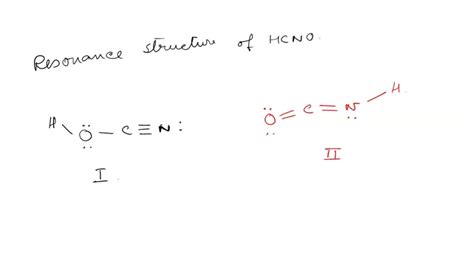 Resonance structure of HCNO.
H
O – C ≡ N :
I
H
O = C = N
II